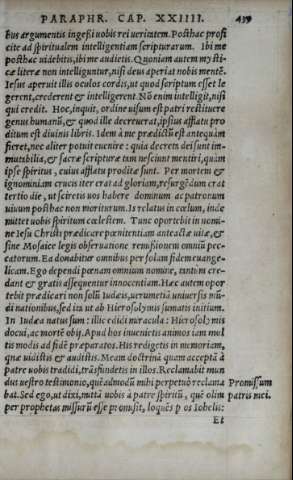 PARAPHR. CAP. XXIIII. 439
bus argumentis ingeßi uobis rei ueritatem. Posthac profi
cite ad spiritualem intelligentiam scripturarum. Ibi me
posthac uidebitis, ibi me audietis. Quoniam autem mysti-
cæ literæ non intelliguntur, nisi deus aperiat nobis mentẽ.
Iesus aperuit illis oculos cordis, ut quod scriptum esset le
gerent, crederent & intelligerent. Nõ enim intelligit, nisi
qui credit. Hoc, inquit, ordine uisum est patri restituere
genus humanũ, & quod ille decreuerat, ipsius afflatu pro
ditum est diuinis libris. Idem à me prædictũ est antequàm
fieret, nec aliter potuit euenire: quia decreta dei sunt im-
mutabilia, & sacræ scripturæ tam nesciunt mentiri, quàm
ipse spiritus, cuius afflatu proditæ sunt. Per mortem &
ignominiam crucis iter erat ad gloriam, resurgẽdum erat
tertio die, ut sciretis uos habere dominum ac patronum
uiuum posthac non moriturum. Is relatus in cœlum, inde
mittet uobis spiritum cœlestem. Tunc oportebit in nomi-
ne Iesu Christi prædicare pœnitentiam anteactæ uitæ, et
sine Mosaicæ legis obseruatione remißionem omniũ pec-
catorum. Ea donabitur omnibus per solam fidem euange-
licam. Ego dependi pœnam omnium nomine, tantum cre-
dant & gratis assequentur innocentiam. Hæc autem opor
tebit prædicari non solũ Iudæis, uerumetiã uniuersis mũ-
di nationibus, sed ita ut ab Hierosolymis sumatis initium.
In Iudæa natus sum: illic edidi miracula: Hierosolymis
docui, ac mortẽ obij. Apud hos inuenietis animos iam mul
tis modis ad fidẽ præparatos. His redigetis in memoriam,
quæ uidistis & audistis. Meam doctrinã quam acceptã à
patre uobis tradidi, trãsfundetis in illos. Reclamabit mun
dus uestro testimonio, quẽadmodũ mihi perpetuò reclama Promissum
bat. Sed ego, ut dixi, mittã uobis à patre spiritũ, quẽ olim patris mei.
per prophetas missurũ esse promisit, loquẽs per os Iohelis:
Et